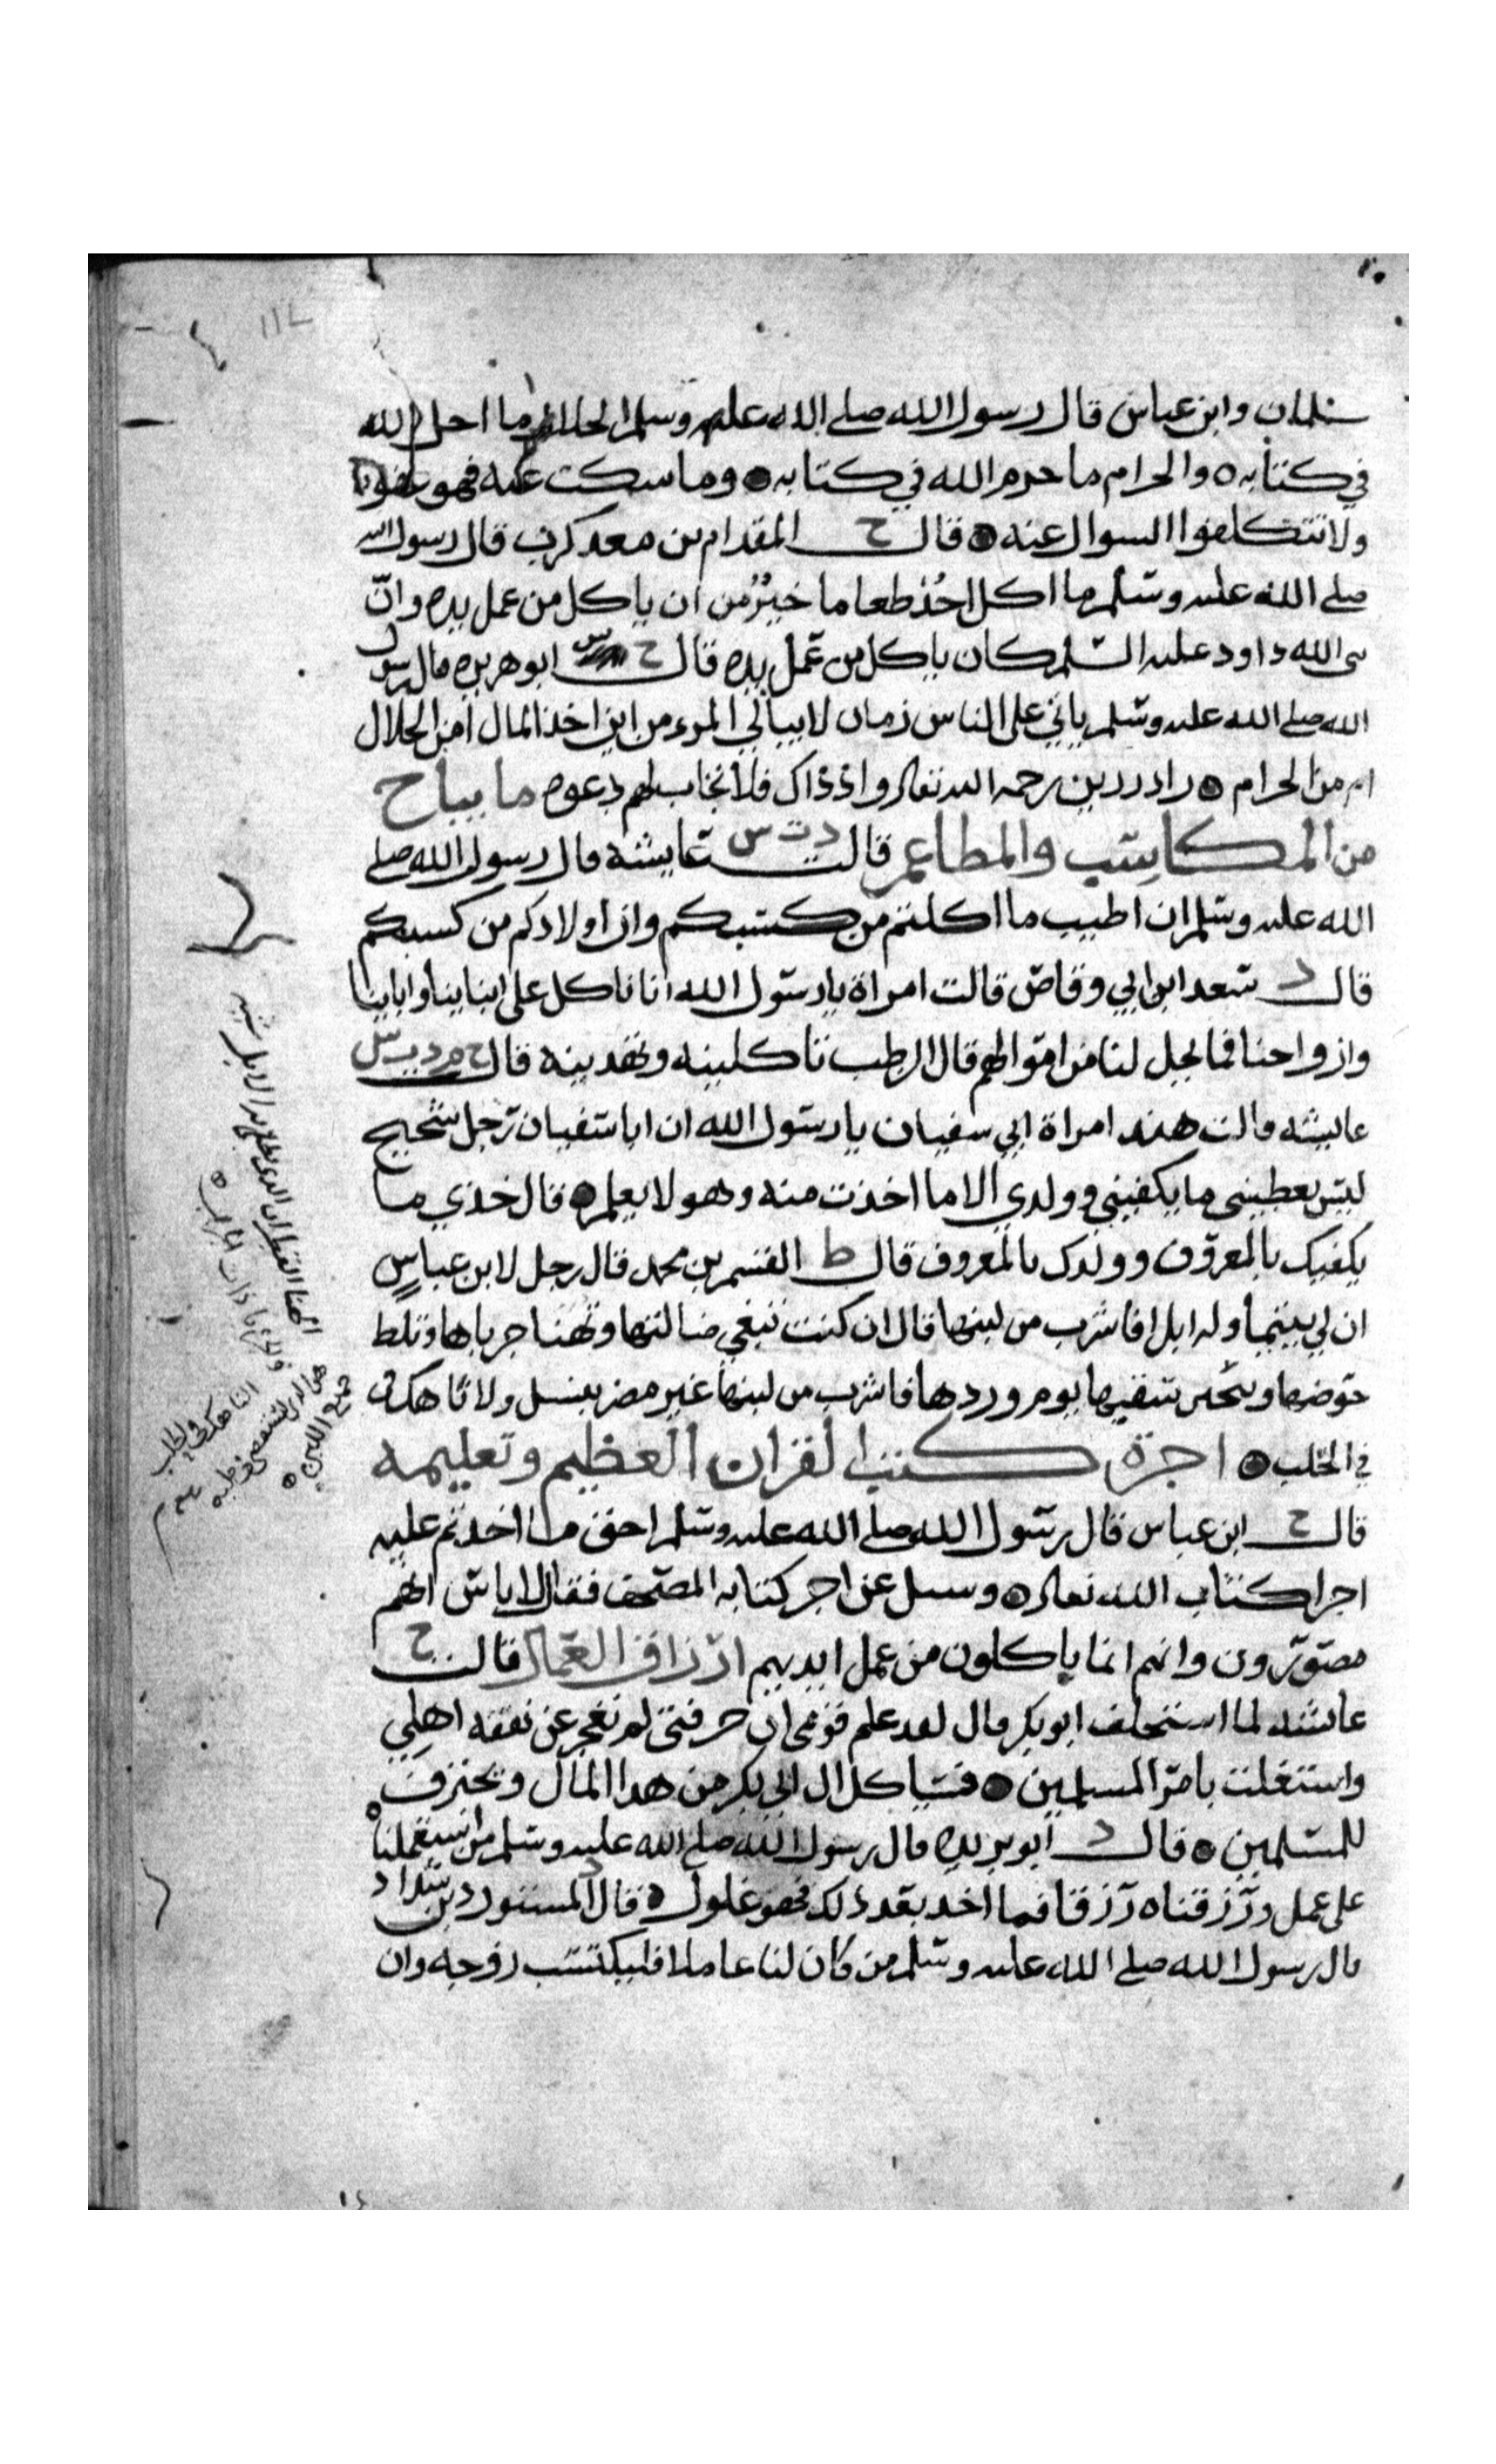 سلمان وابن عباس قال رسول الله صلى الله عليه وسلم الحلال ما احل الله
في كتابه ٥ والحرام ما حرم الله في كتابه ٥ وما سكت عنه فهو عفو
ولا تتكلفوا السوال عنه ٥ قال خ المقدام بن معد كرب قال رسول الله
صلى الله عليه وسلم ما اكل احد طعاما خير من ان ياكل من عمل يده وانّ
نبى الله داود عليه السلم كان ياكل من عمل يده قال خ س ابو هريره قال رسول
الله صلى الله عليه وسلم ياتي على الناس زمان لا يبالي المرء من اين اخذ المال امن الحلال
ام من الحرام ٥ زاد رزين رحمه الله تعالى واذ ذاك فلا تجاب لهم دعوه ما يباح
من المكاسب والمطاعم قالت د ت س عايشة قال رسول الله صلى
الله عليه وسلم ان اطيب ما اكلتم من كسبكم وان اولادكم من كسبكم
قال د سعد ابن ابي وقاص قالت امراة يا رسول الله انا ناكل على ابناينا وابآينا
وازواجنا فما يحل لنا من اموالهم قال الرطب تاكلينه وتهدينه قال خ م د س
عايشه قالت هند امراة ابي سفيان يا رسول الله ان ابا سفيان رجل شحيح
ليس يعطيني ما يكفيني وولدي الا ما اخذت منه وهو لا يعلم ٥ قال خذي ما
يكفيك بالمعروف وولدك بالمعروف قال ط القسم بن محمد قال رجل لابن عباس
ان لي يتيما وله ابل افاشرب من لبنها قال ان كنت تبغي ضالتها وتهنا جرباها وتلط
حوضها وتسقيها يوم وردها فاشرب من لبنها غير مضر بنسل ولا ناهك
في الحلب ٥ اجرة كتب القران العظيم وتعليمه
قال خ ابن عباس قال رسول الله صلى الله عليه وسلم احق ما اخذتم عليه
اجرا كتاب الله تعالى ٥ وسيل عن اجر كتابه المصحف فقال لا باس انهم
مصورون وانهم انما ياكلون من عمل ايديهم ارزاق العمال قالت خ
عايشه لما استخلف ابو بكر قال لقد علم قومي ان حرفتي لم تعجز عن نفقه اهلي
واشتغلت بامر المسلمين ٥ فسياكل ال ابي بكر من هذا المال ويحترف
للمسلمين ٥ قال د ابو بريده قال رسول الله صلى الله عليه وسلم من استعملناه
على عمل ورزقناه رزقا فما اخذ بعد ذلك فهو غلول ٥ قال د المستورد بن شداد
قال رسول الله صلى الله عليه وسلم من كان لنا عاملا فليكتسب زوجه وان
الهنا القطران الذي يطلى به الابل
الناهك في الحلب
جميع اللبن ٥